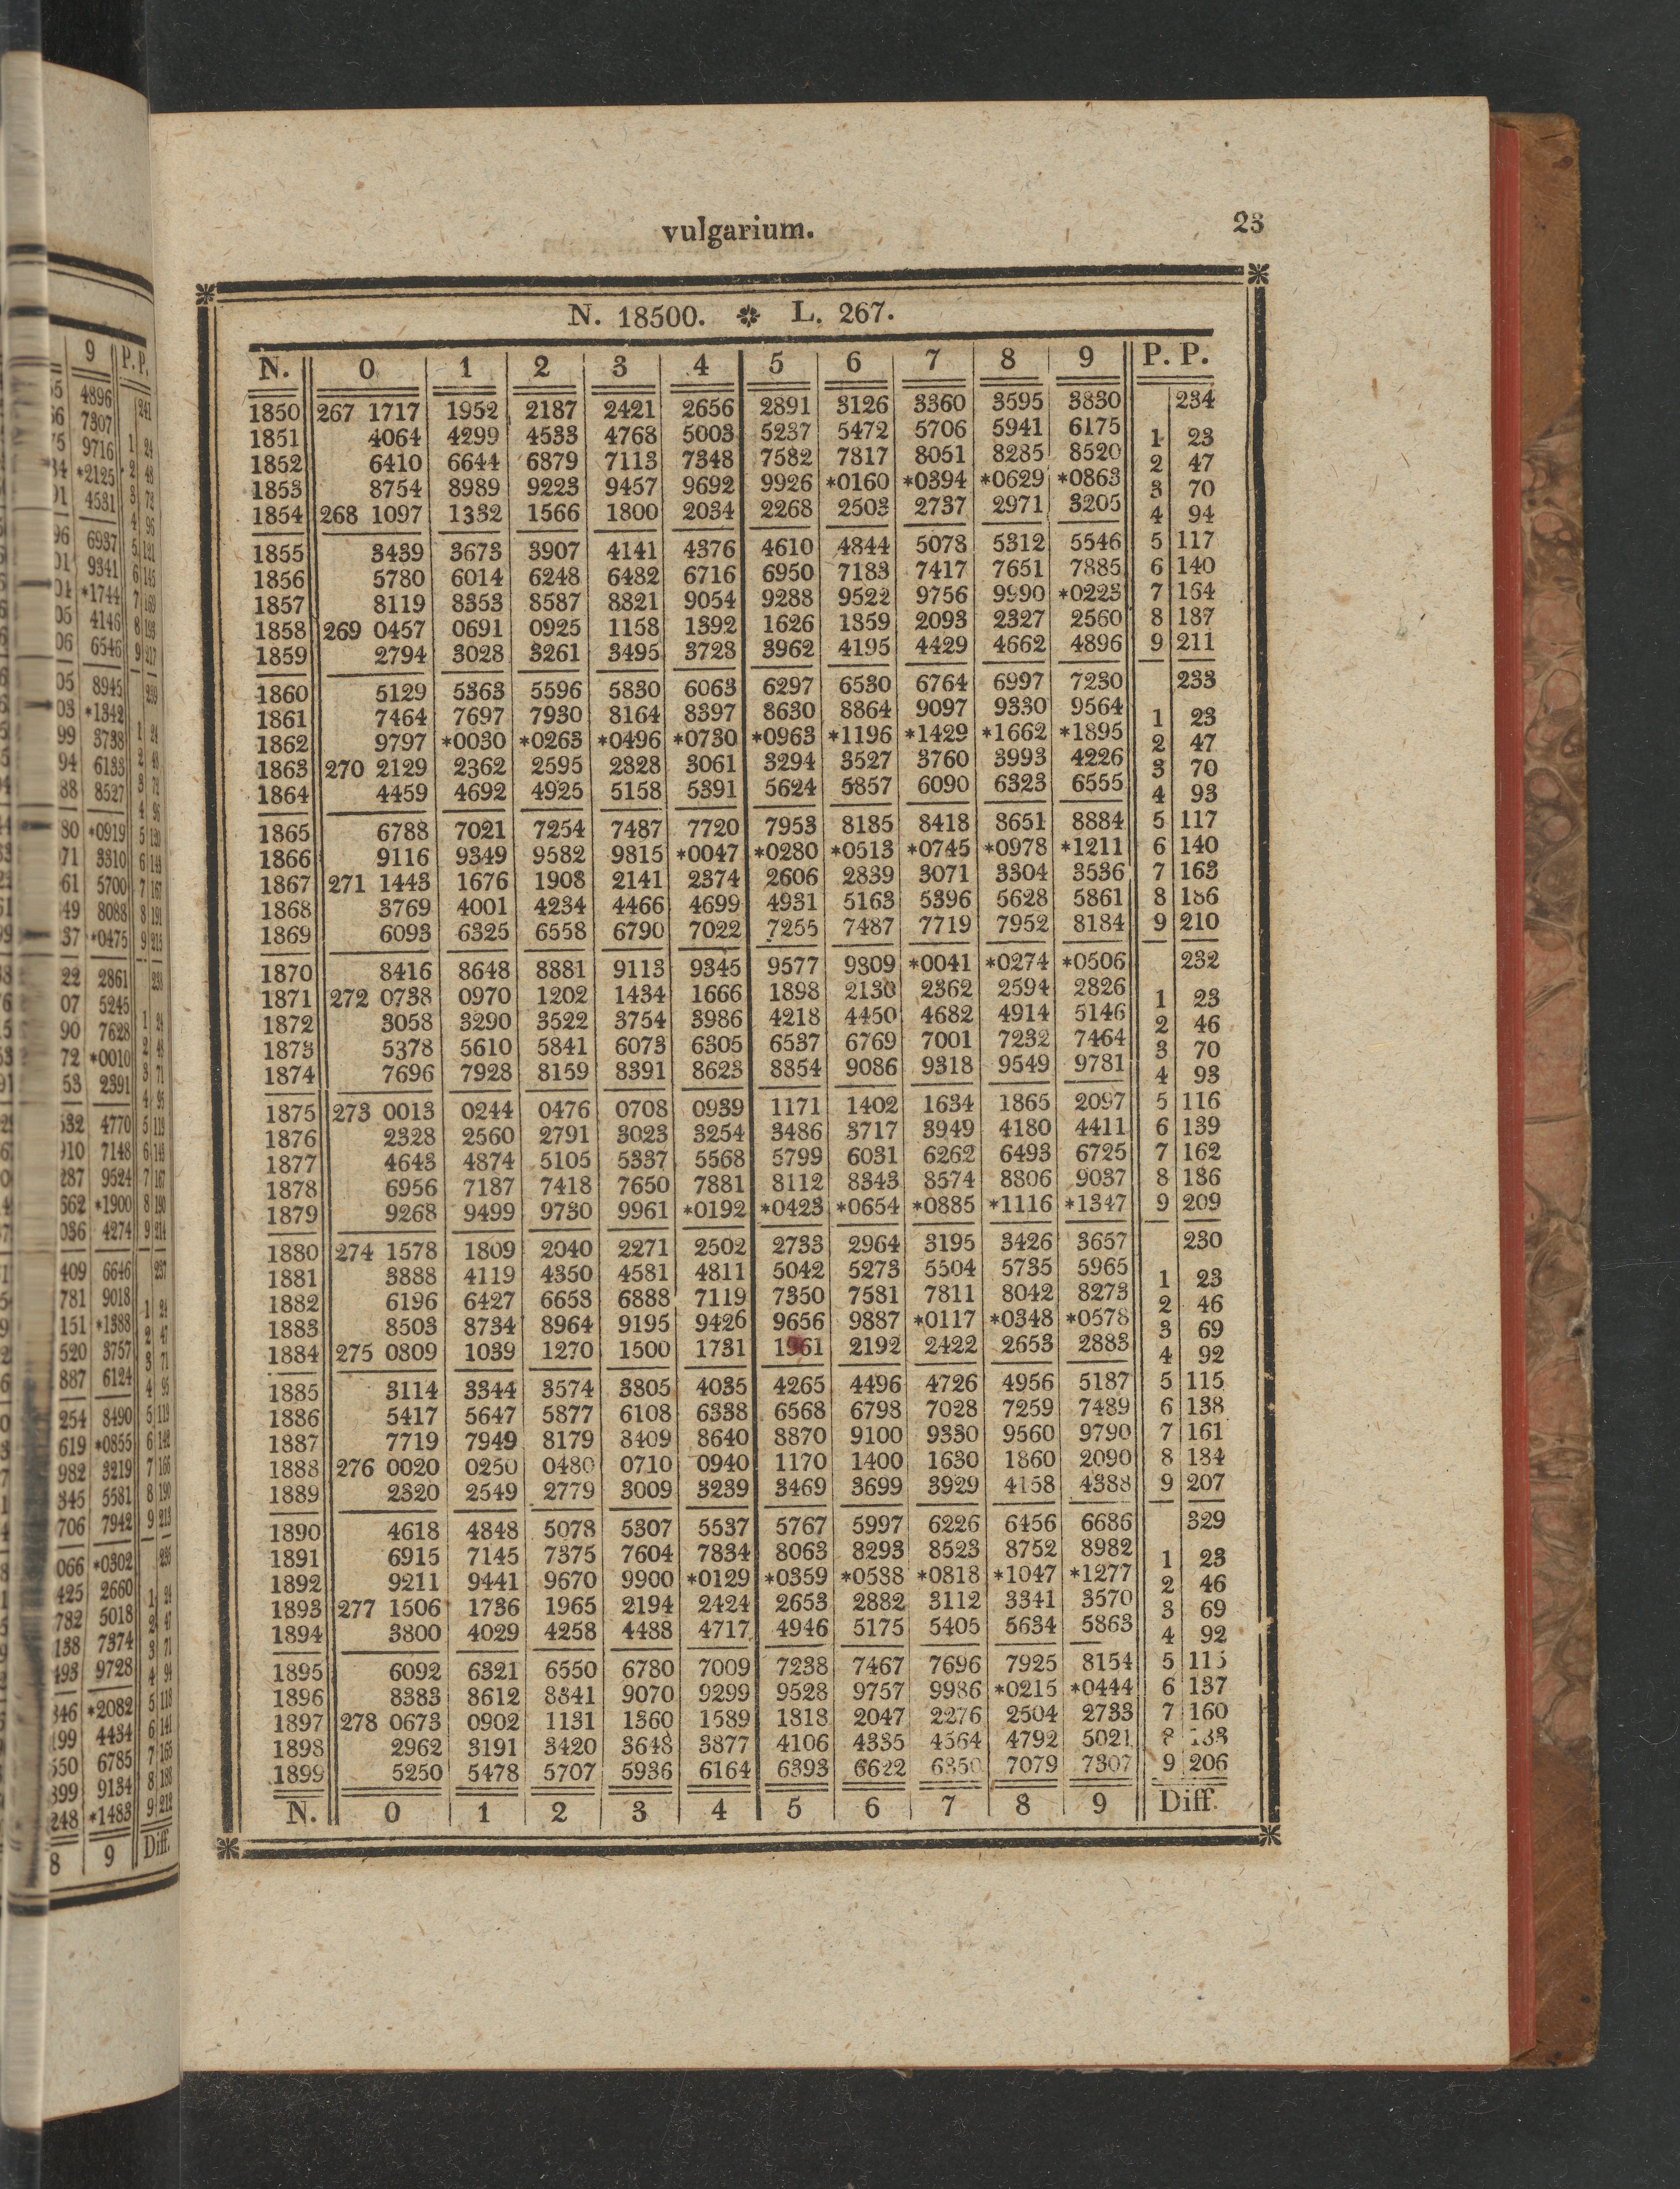 vulgarium. 23
N. 18500. L. 267.
N. 0 1 2 3 4 5 6 7 8 9 P. P.
1850 267 1717 1952 2187 2421 2656 2891 3126 3360 3595 3830 234
1851 4064 4299 4533 4768 5003 5237 5472 5706 5941 6175 1 23
1852 6410 6644 6879 7113 7348 7582 7817 8051 8285 8520 2 47
1853 8754 8989 9223 9457 9692 9926 *0160 *0394 *0629 *0863 3 70
1854 268 1097 1332 1566 1800 2034 2268 2503 2737 2971 3205 4 94
1855 3439 3673 3907 4141 4376 4610 4844 5078 5312 5546 5 117
1856 5780 6014 6248 6482 6716 6950 7183 7417 7651 7885 6 140
1857 8119 8353 8587 8821 9054 9288 9522 9756 9990 *0223 7 164
1858 269 0457 0691 0925 1158 1392 1626 1859 2093 2327 2560 8 187
1859 2794 3028 3261 3495 3728 3962 4195 4429 4662 4896 9 211
1860 5129 5363 5596 5830 6063 6297 6530 6764 6997 7230 233
1861 7464 7697 7930 8164 8397 8630 8864 9097 9330 9564 1 23
1862 9797 *0030 *0263 *0496 *0730 *0963 *1196 *1429 *1662 *1895 2 47
1863 270 2129 2362 2595 2828 3061 3294 3527 3760 3993 4226 3 70
1864 4459 4692 4925 5158 5391 5624 5857 6090 6323 6555 4 93
1865 6788 7021 7254 7487 7720 7953 8185 8418 8651 8884 5 117
1866 9116 9349 9582 9815 *0047 *0280 *0513 *0745 *0978 *1211 6 140
1867 271 1443 1676 1908 2141 2374 2606 2839 3071 3304 3536 7 163
1868 3769 4001 4234 4466 4699 4931 5163 5396 5628 5861 8 186
1869 6093 6325 6558 6790 7022 7255 7487 7719 7952 8184 9 210
1870 8416 8648 8881 9113 9345 9577 9809 *0041 *0274 *0506 232
1871 272 0738 0970 1202 1434 1666 1898 2130 2362 2594 2826 1 23
1872 3058 3290 3522 3754 3986 4218 4450 4682 4914 5146 2 46
1873 5378 5610 5841 6073 6305 6537 6769 7001 7232 7464 3 70
1874 7696 7928 8159 8391 8623 8854 9086 9318 9549 9781 4 93
1875 273 0013 0244 0476 0708 0939 1171 1402 1634 1865 2097 5 116
1876 2328 2560 2791 3023 3254 3486 3717 3949 4180 4411 6 139
1877 4643 4874 5105 5337 5568 5799 6031 6262 6493 6725 7 162
1878 6956 7187 7418 7650 7881 8112 8343 8574 8806 9037 8 186
1879 9268 9499 9730 9961 *0192 *0423 *0654 *0885 *1116 *1347 9 209
1880 274 1578 1809 2040 2271 2502 2733 2964 3195 3426 3657 230
1881 3888 4119 4350 4581 4811 5042 5273 5504 5735 5965 1 23
1882 6196 6427 6658 6888 7119 7350 7581 7811 8042 8273 2 46
1883 8503 8734 8964 9195 9426 9656 9887 *0117 *0348 *0578 3 69
1884 275 0809 1039 1270 1500 1731 1961 2192 2422 2653 2883 4 92
1885 3114 3344 3574 3805 4035 4265 4496 4726 4956 5187 5 115
1886 5417 5647 5877 6108 6338 6568 6798 7028 7259 7489 6 138
1887 7719 7949 8179 8409 8640 8870 9100 9330 9560 9790 7 161
1888 276 0020 0250 0480 0710 0940 1170 1400 1630 1860 2090 8 184
1889 2320 2549 2779 3009 3239 3469 3699 3929 4158 4388 9 207
1890 4618 4848 5078 5307 5537 5767 5997 6226 6456 6686 329
1891 6915 7145 7375 7604 7834 8063 8293 8523 8752 8982 1 23
1892 9211 9441 9670 9900 *0129 *0359 *0588 *0818 *1047 *1277 2 46
1893 277 1506 1736 1965 2194 2424 2653 2882 3112 3341 3570 3 69
1894 3800 4029 4258 4488 4717 4946 5175 5405 5634 5863 4 92
1895 6092 6321 6550 6780 7009 7238 7467 7696 7925 8154 5 115
1896 8383 8612 8841 9070 9299 9528 9757 9986 *0215 *0444 6 137
1897 278 0673 0902 1131 1360 1589 1818 2047 2276 2504 2733 7 160
1898 2962 3191 3420 3648 3877 4106 4335 4564 4792 5021 8
1899 5250 5478 5707 5936 6164 6393 6622 6850 7079 7307 9 206
N. 0 1 2 3 4 5 6 7 8 9 Diff.